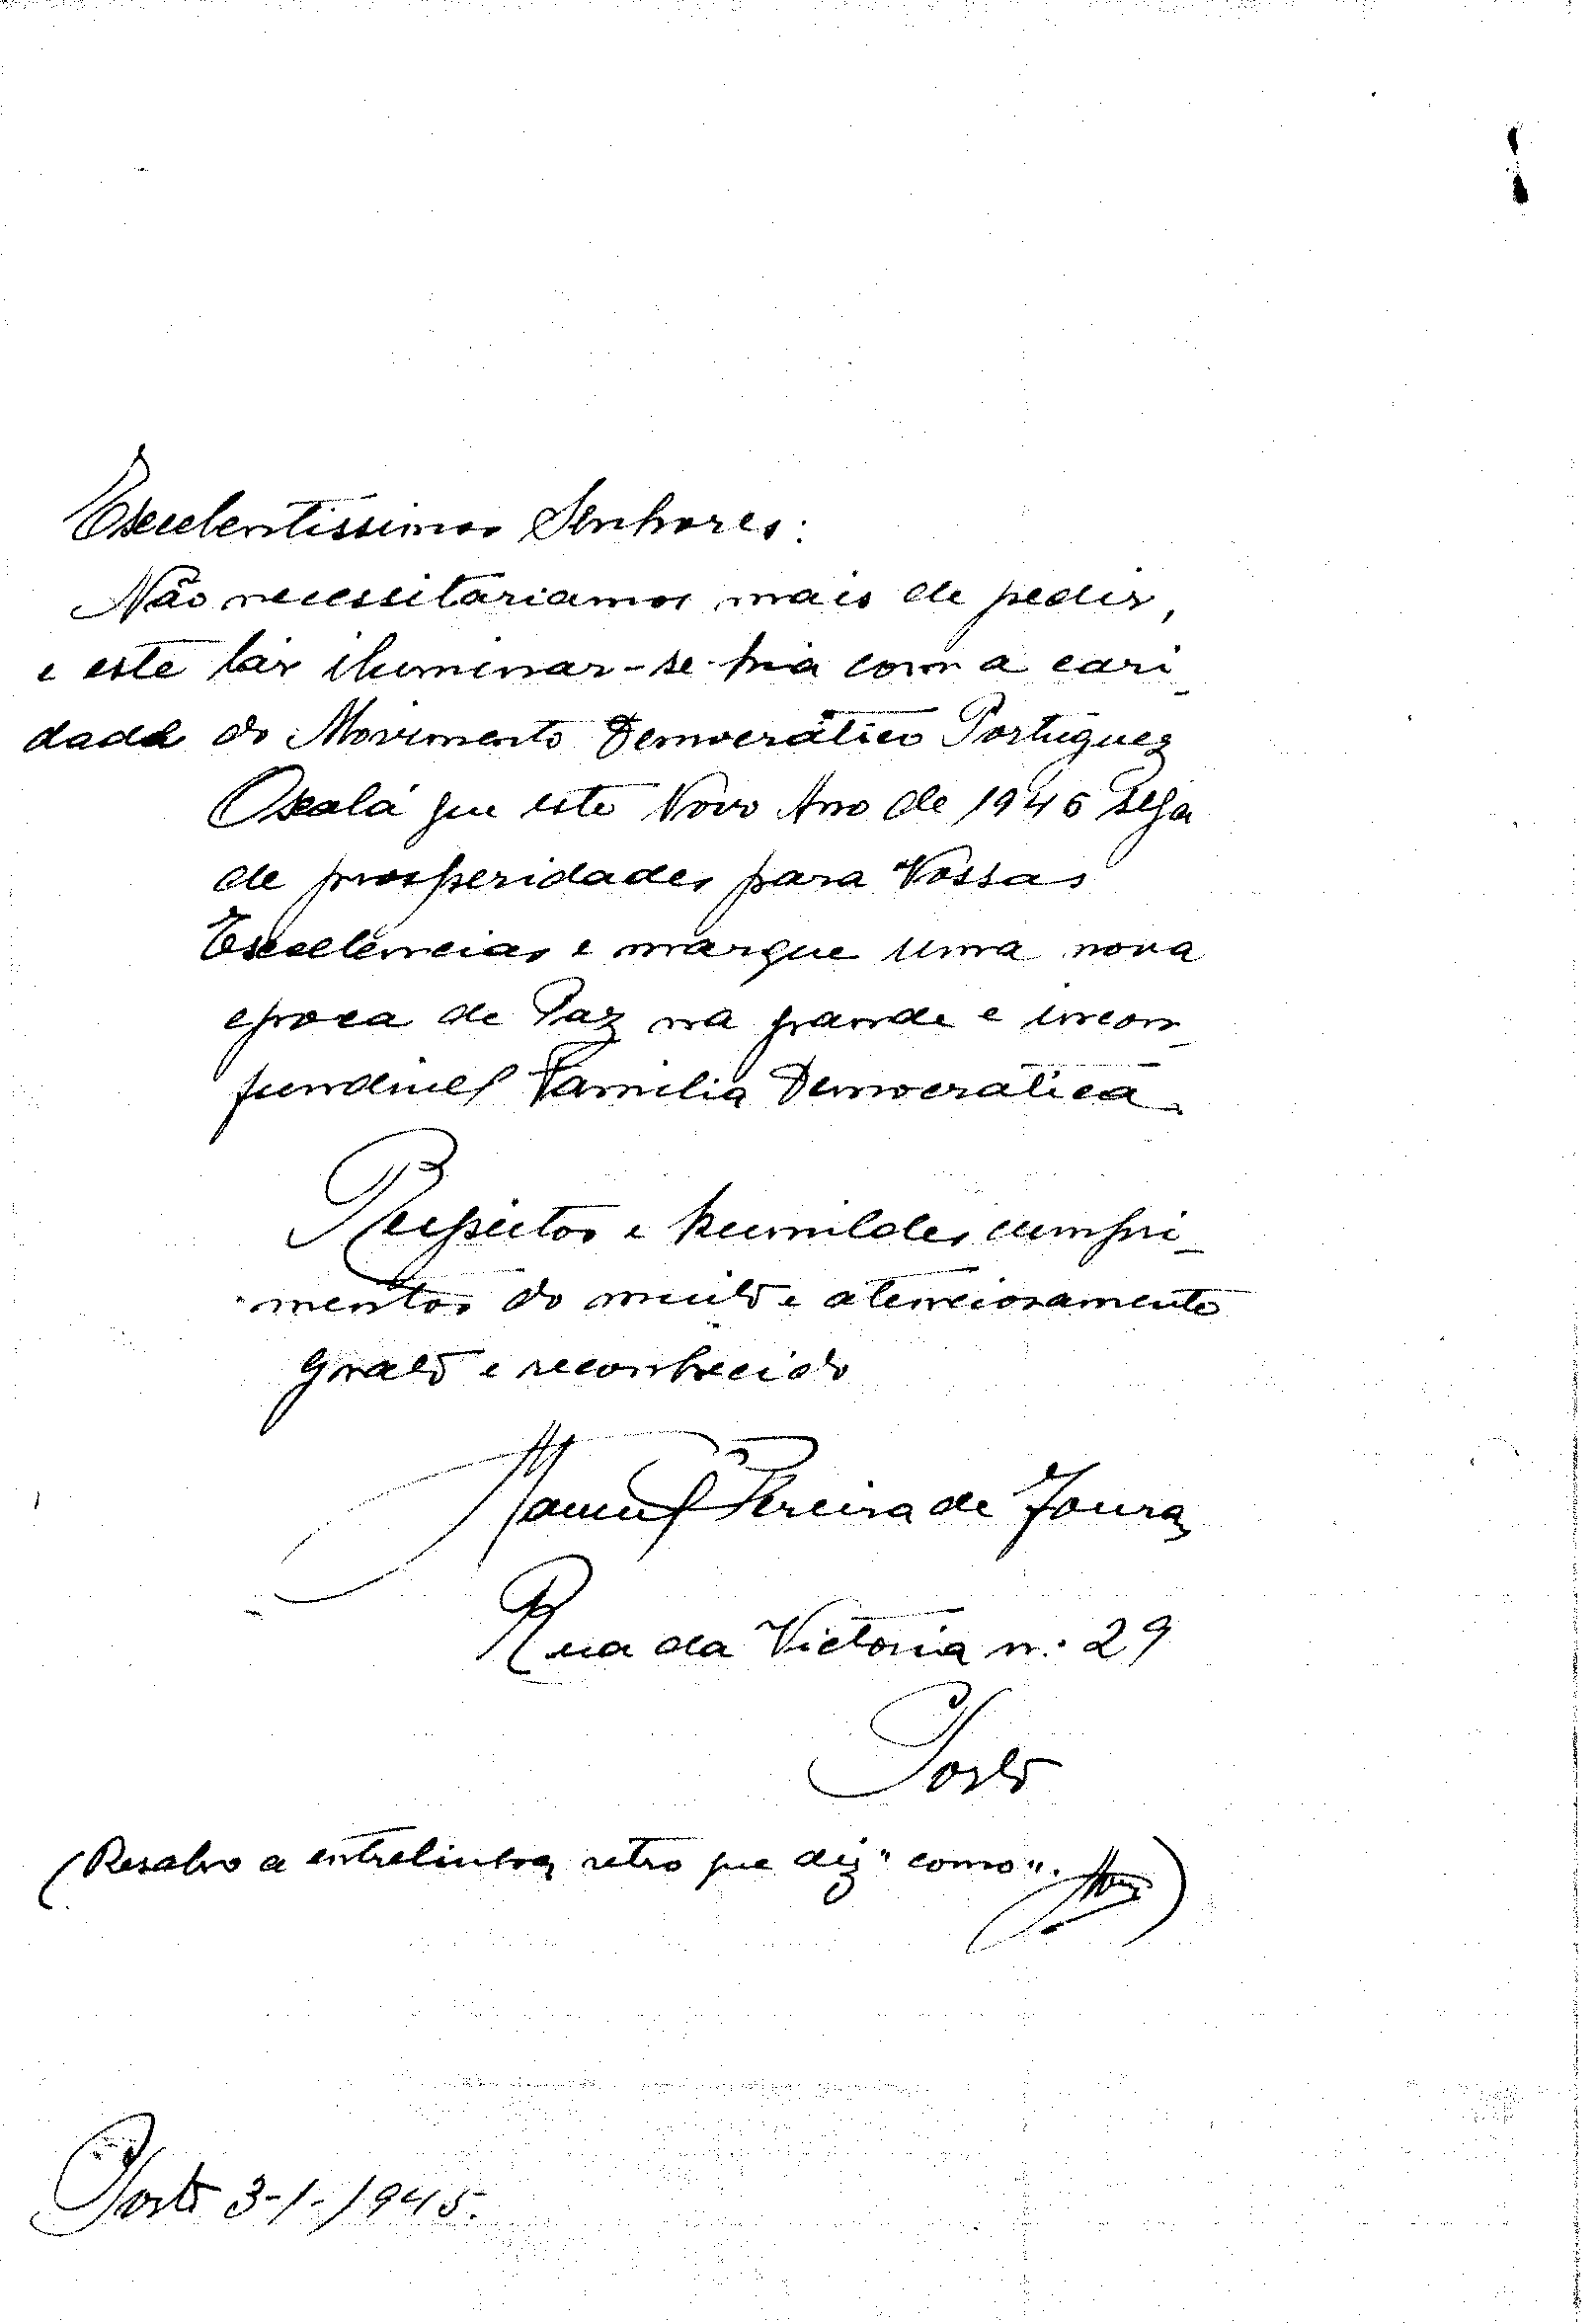 Excelentissimos Senhores:
Não necessitariamos mais de pedir,
e este lár iluminar-se-hia com a cari-
dade do Movimento Democrático Português
Oxalá que este Novo Ano de 1945 seja
de prosperidades para Vossas
Excelências e marque uma nova
epoca de Paz na grande e incon-
fundivel Familia Democratica.
Respeitos e humildes cumpri-
mentos do muito e atenciosamente
grato e reconhecido
Manuel Pereira de Moura
Rua da Victoria n.º 29
Porto
(Resalvo a entrelinha retro que diz "como".
Porto 3-1-1945.